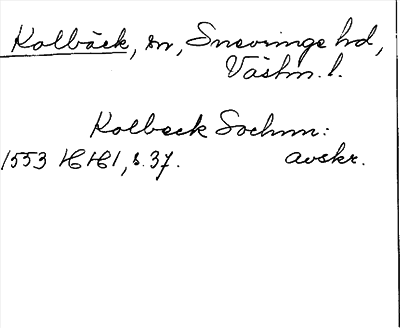 Kolbäck, sn, Snevringe hd,
Västm. l.
Kolbeck Sochnn:
1553 HH 1, s. 37. avskr.